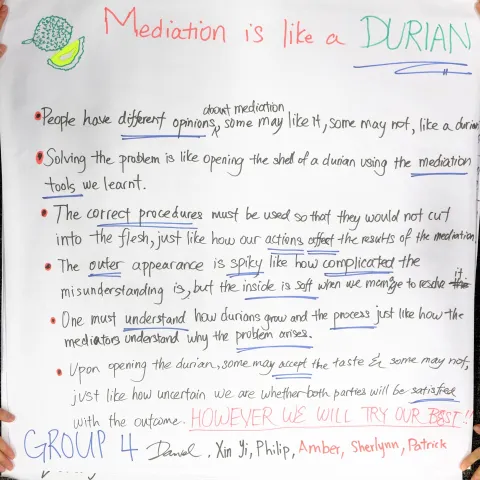 Mediation is like a DURIAN
about mediation
People have different opinions, some may like it, some may not, like a durian
Solving the problem is like opening the shell of a durian using the mediation
tools we learnt.
The correct procedures must be used so that they would not cut
into the flesh, just like how our actions affect the results of the mediation
The outer appearance is spiky like how complicated the
misunderstanding is, but the inside is soft when we manage to resolve it
One must understand how durians grow and the process just like how the
mediators understand why the problem arises.
Upon opening the durian, some may accept the taste & some may not,
just like how uncertain we are whether both parties will be satisfied
with the outcome. HOWEVER WE WILL TRY OUR BEST!!
GROUP 4 Daniel, Xin Yi, Philip, Amber, Sherlynn, Patrick